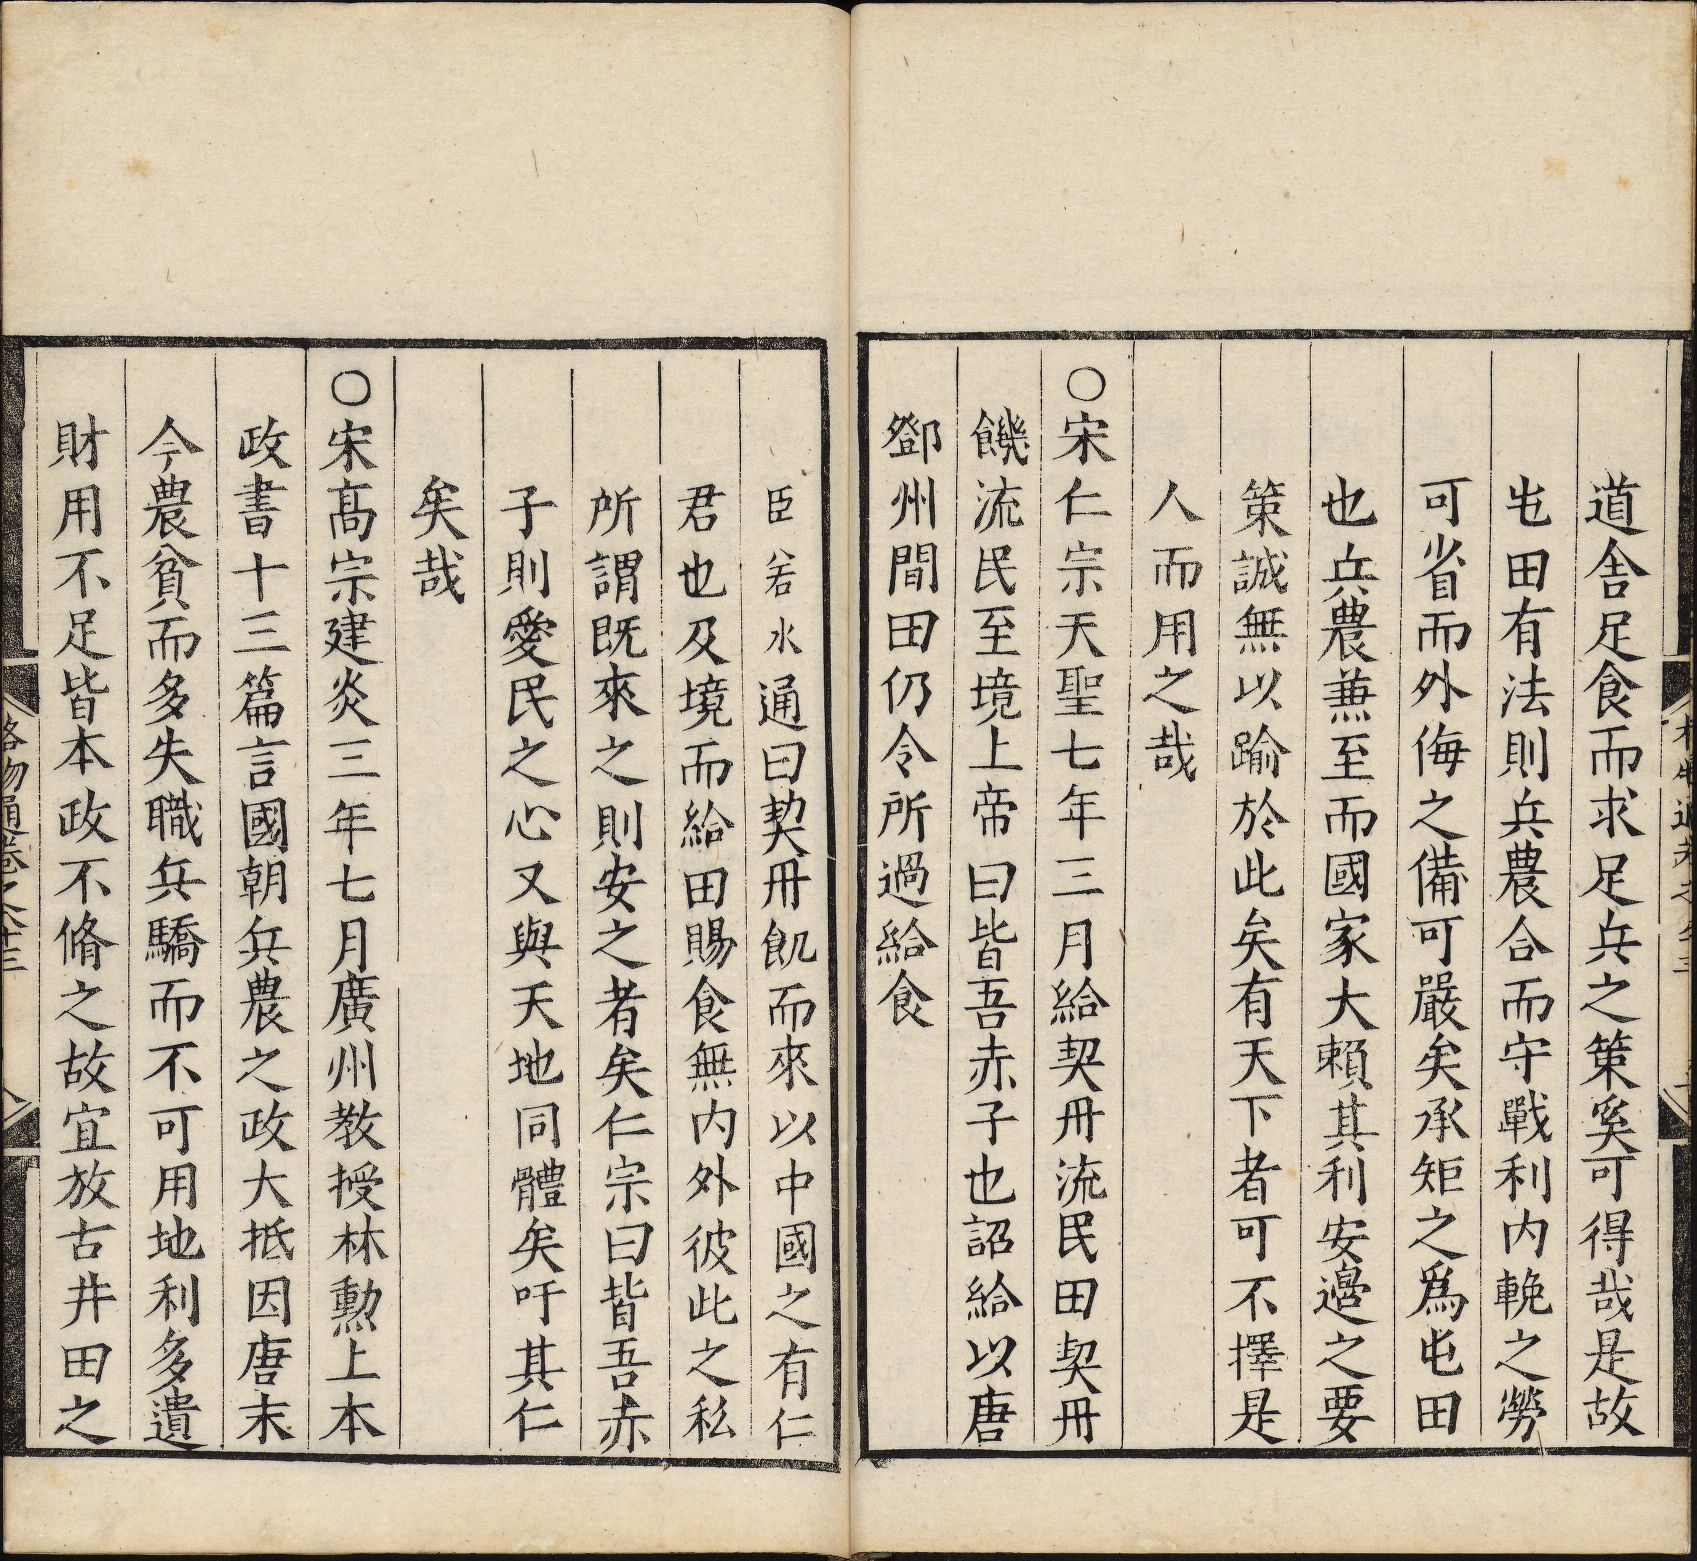 道舍足食而求足兵之策奚可得哉是故
屯田有法則兵農合而守戰利内輓之勞
可省而外侮之備可嚴矣承矩之爲屯田
也兵農兼至而國家大賴其利安邉之要
策誠無以踰於此矣有天下者可不擇是
人而用之哉
○宋仁宗天聖七年三月給契丹流民田契丹
饑流民至境上帝曰皆吾赤子也詔給以唐
鄧州閒田仍令所過給食
臣若水通曰契丹飢而來以中國之有仁
君也及境而給田賜食無内外彼此之私
所謂既來之則安之者矣仁宗曰皆吾赤
子則愛民之心又與天地同體矣吁其仁
矣哉
○宋髙宗建炎三年七月廣州教授林勳上本
政書十三篇言國朝兵農之政大抵因唐末
今農貧而多失職兵驕而不可用地利多遺
財用不足皆本政不脩之故宜放古井田之
格物通卷之八十三